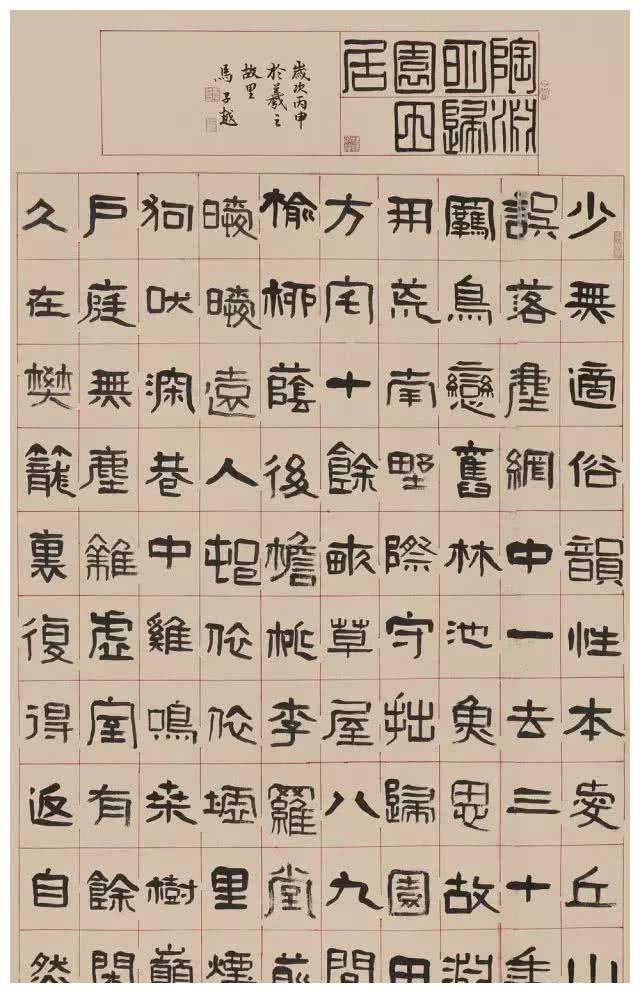 陶淵
明歸
園田
居
歲次丙申
於羲之
故里
馬子越
少無適俗韻性本愛丘山
誤落塵網中一去三十年
羈鳥戀舊林池魚思故淵
開荒南野際守拙歸園田
方宅十餘畝草屋八九間
榆柳蔭後檐桃李羅堂前
曖曖遠人邨依依墟里煙
狗吠深巷中雞鳴桑樹巔
戶庭無塵雜虛室有餘閑
久在樊籠裏復得返自然